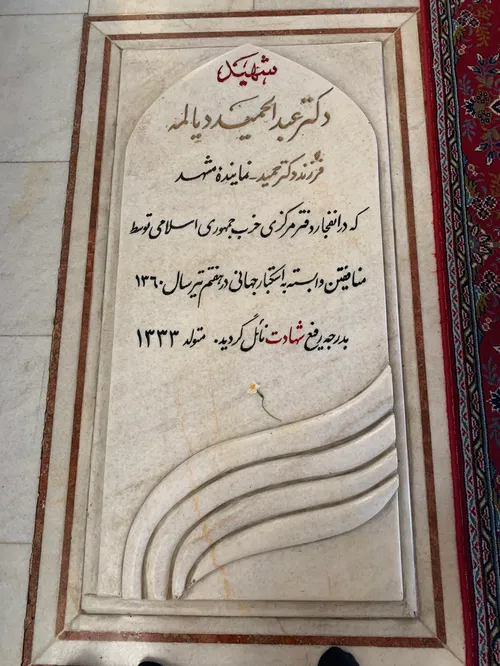 شهید
دکتر عبدالحمید دیالمه
فرزند دکتر حمید - نماینده مشهد
که در انفجار دفتر مرکزی حزب جمهوری اسلامی توسط
منافقین وابسته به استکبار جهانی در هفتم تیر سال ۱۳۶۰
بدرجه رفیع شهادت نائل گردید. متولد ۱۳۳۳